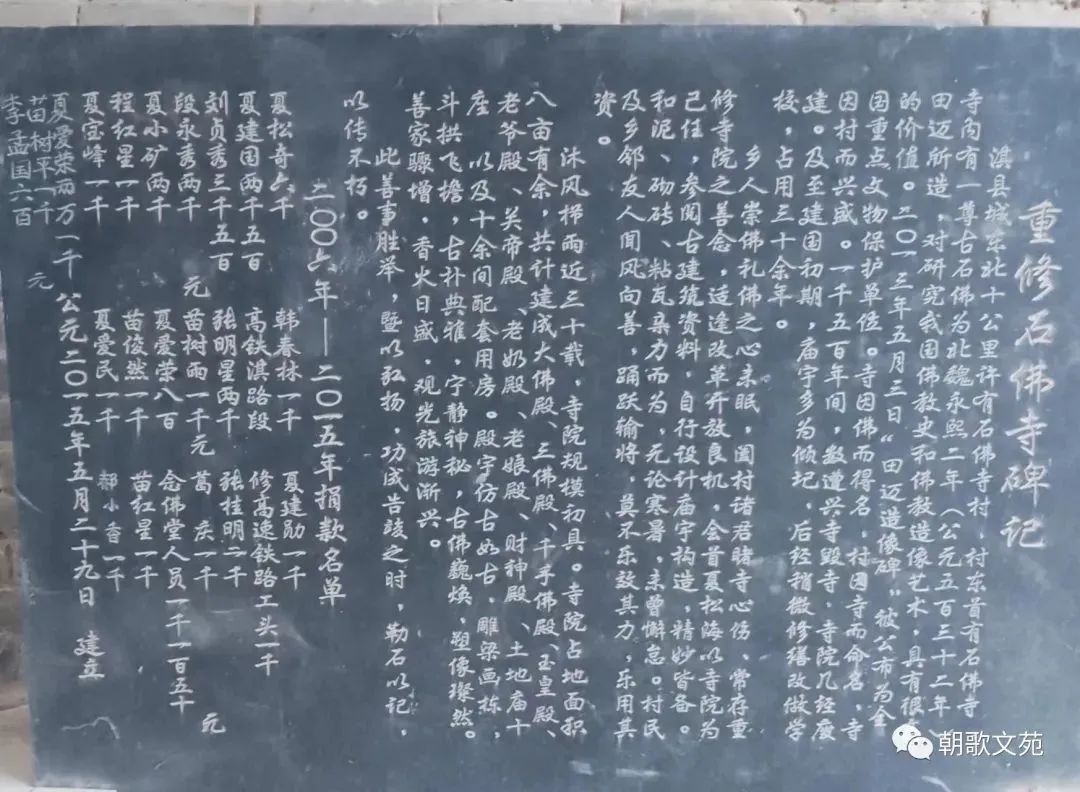 重修石佛寺碑记
淇县城东北十公里许有石佛寺村，村东首有石佛寺，
寺内有一尊古石佛为北魏永熙二年（公元五百三十二年）
田迈所造，对研究我国佛教史和佛教造像艺术，具有很高
的价值。二〇一三年五月三日“田迈造像碑”被公布为全
国重点文物保护单位。寺因佛而得名，村因寺而命名，寺
因村而兴盛。一千五百年间，数遭兴寺毁寺，寺院几经废
建。及至建国初期，庙宇多为倾圮，后经稍微修缮改做学
校，占用三十余年。
乡人崇佛礼佛之心未眠，阖村诸君睹寺心伤，常存重
修寺院之善念，适逢改革开放良机，会首夏松海以寺院为
己任，参阅古建筑资料，自行设计庙宇构造，精妙皆备。
和泥、砌砖、粘瓦亲力而为，无论寒暑，未曾懈怠。村民
及乡邻友人闻风向善，踊跃输将，莫不乐效其力，乐用其
资。
沐风栉雨近三十载，寺院规模初具。寺院占地面积
八亩有余，共计建成大佛殿、三佛殿、千手佛殿、玉皇殿、
老爷殿、关帝殿、老奶殿、老娘殿、财神殿、土地庙十
座，以及十余间配套用房。殿宇仿古如古，雕梁画栋，
斗拱飞檐，古朴典雅，宁静神秘，古佛巍焕，塑像璨然。
善家骤增，香火日盛，观光旅游渐兴。
此善事胜举，暨以弘扬，功成告竣之时，勒石以记，
以传不朽。
二00六年——二0一五年捐款名单
夏松奇六千 韩春林一千 夏建勋一千
夏建国两千五百 高铁淇路段 修高速铁路工头一千
刘贞秀三千五百 张明星两千 张桂明二千
段永秀两千 元 苗树雨一千元 葛庆一千
夏小矿两千 夏爱荣八百 念佛堂人员一千一百五十 元
程红星一千 苗俊然一千 苗红星一千
夏宝峰一千 夏爱民一千 郝小香一千
夏爱荣两万一千 公元二0一五年五月二十九日 建立
苗树平一千
李孟国六百 元
朝歌文苑